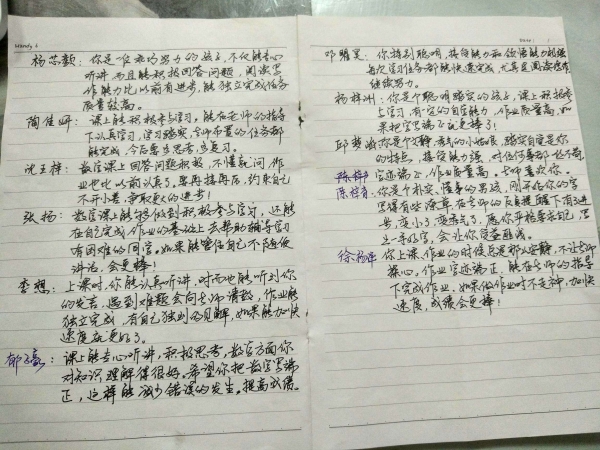 Mandy 4
杨芯颖：你是一位乖巧努力的孩子，不仅能专心
听讲而且能积极回答问题，阅读写
作能力比以前有进步，能独立完成任务
质量较高。
陶佳妍：课上能积极参与学习。能在老师的指导
下认真学习，学习踏实，老师布置的任务都
能完成，今后要多思考，多复习。
沈王梓：数学课上回答问题积极，不懂就问，作
业也比以前认真了。要再接再厉，约束自己
不开小差，争取更大的进步！
张扬：数学课上能够做到积极参与学习，还能
在自己完成作业的基础上去帮助辅导学习
有困难的同学。如果能管住自己不随便
讲话，会更棒！
李想：上课时，你能认真听讲，时而也能听到你
的发言，遇到难题会向老师请教，作业能
独立完成，有自己独到的见解，如果能加快
速度在更好了。
郁子豪：课上能专心听讲，积极思考，数学方面你
对知识理解得很好。希望你把数字写端
正，这样能减少错误的发生。提高成绩。
Date
邓 昊：你特别聪明，接受能力和领悟能力极强
每次学习任务都能快速完成，尤其是阅读,
继续努力。
杨梓洲：你是个聪明踏实的孩子，课上积极参
与学习，有一定的自觉能力，作业质量高，如
果把字写端正就更棒了！
邱 你是个文静 的小姑娘，踏实自觉是你
的特点，接受能力强，对任何事都一丝不苟，
字迹端正，作业质量高。老师喜欢你。
陈梓 ：你是个朴实、懂事的男孩，刚开始你的字
写得有些潦草在老师的 提醒下有了进
步，变小了变漂亮了，愿你严格要求自己，写
一手好字，会让你受益匪浅。
徐 ：你上课，作业的时候总是那么安静，不让老师
操心，作业字迹端正，能在老师的指导
下完成作业，如果做作业时不走神，加快
速度，成绩会更棒！